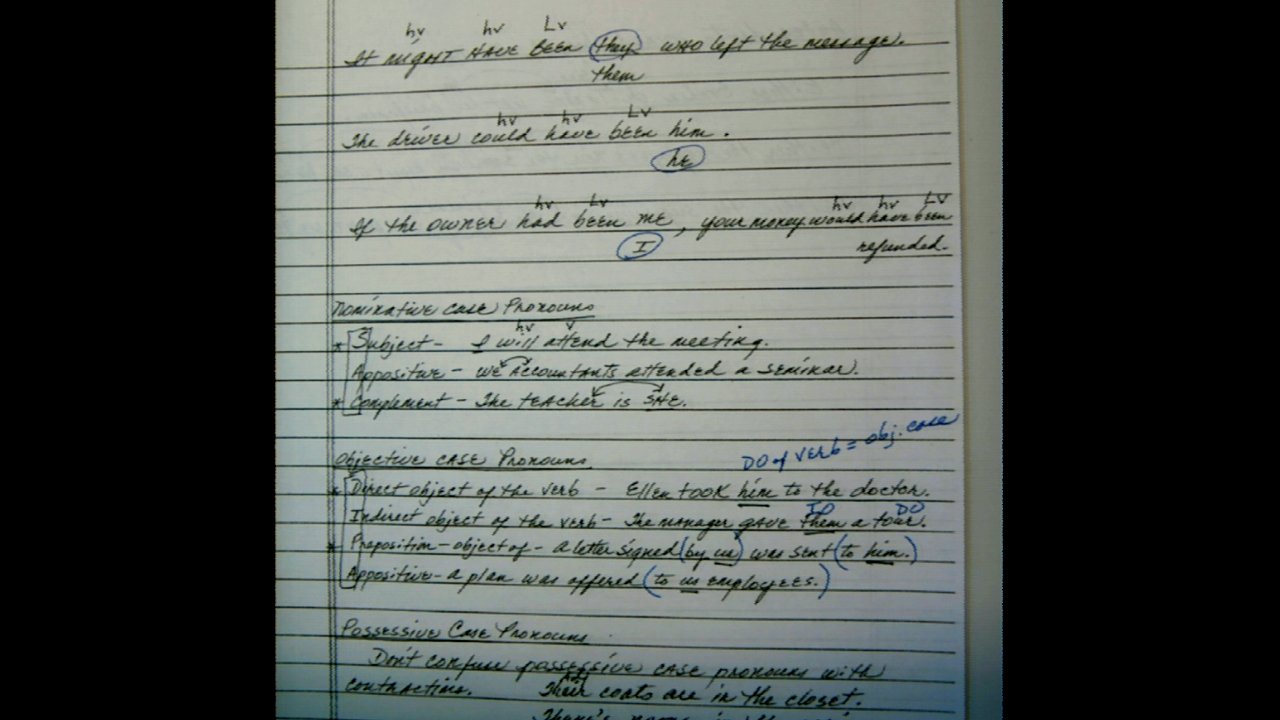 hv hv Lv
It might have been they who left the message.
them
hv hv Lv
The driver could have been him.
he
hv Lv hv hv LV
If the owner had been me, your money would have been
I refunded.
Nominative Case Pronouns
hv v
* Subject - I will attend the meeting.
Appositive - we accountants attended a seminar.
* Complement - The teacher is she.
DO of verb = obj. case
Objective case Pronouns
* Direct object of the verb - Ellen took him to the doctor.
IO DO
Indirect object of the verb - The manager gave them a tour.
* Preposition - object of - a letter signed (by us) was sent (to him.)
Appositive - a plan was offered (to us employees.)
Possessive Case Pronouns
Don't confuse possessive case pronouns with
contractions. Their coats are in the closet.